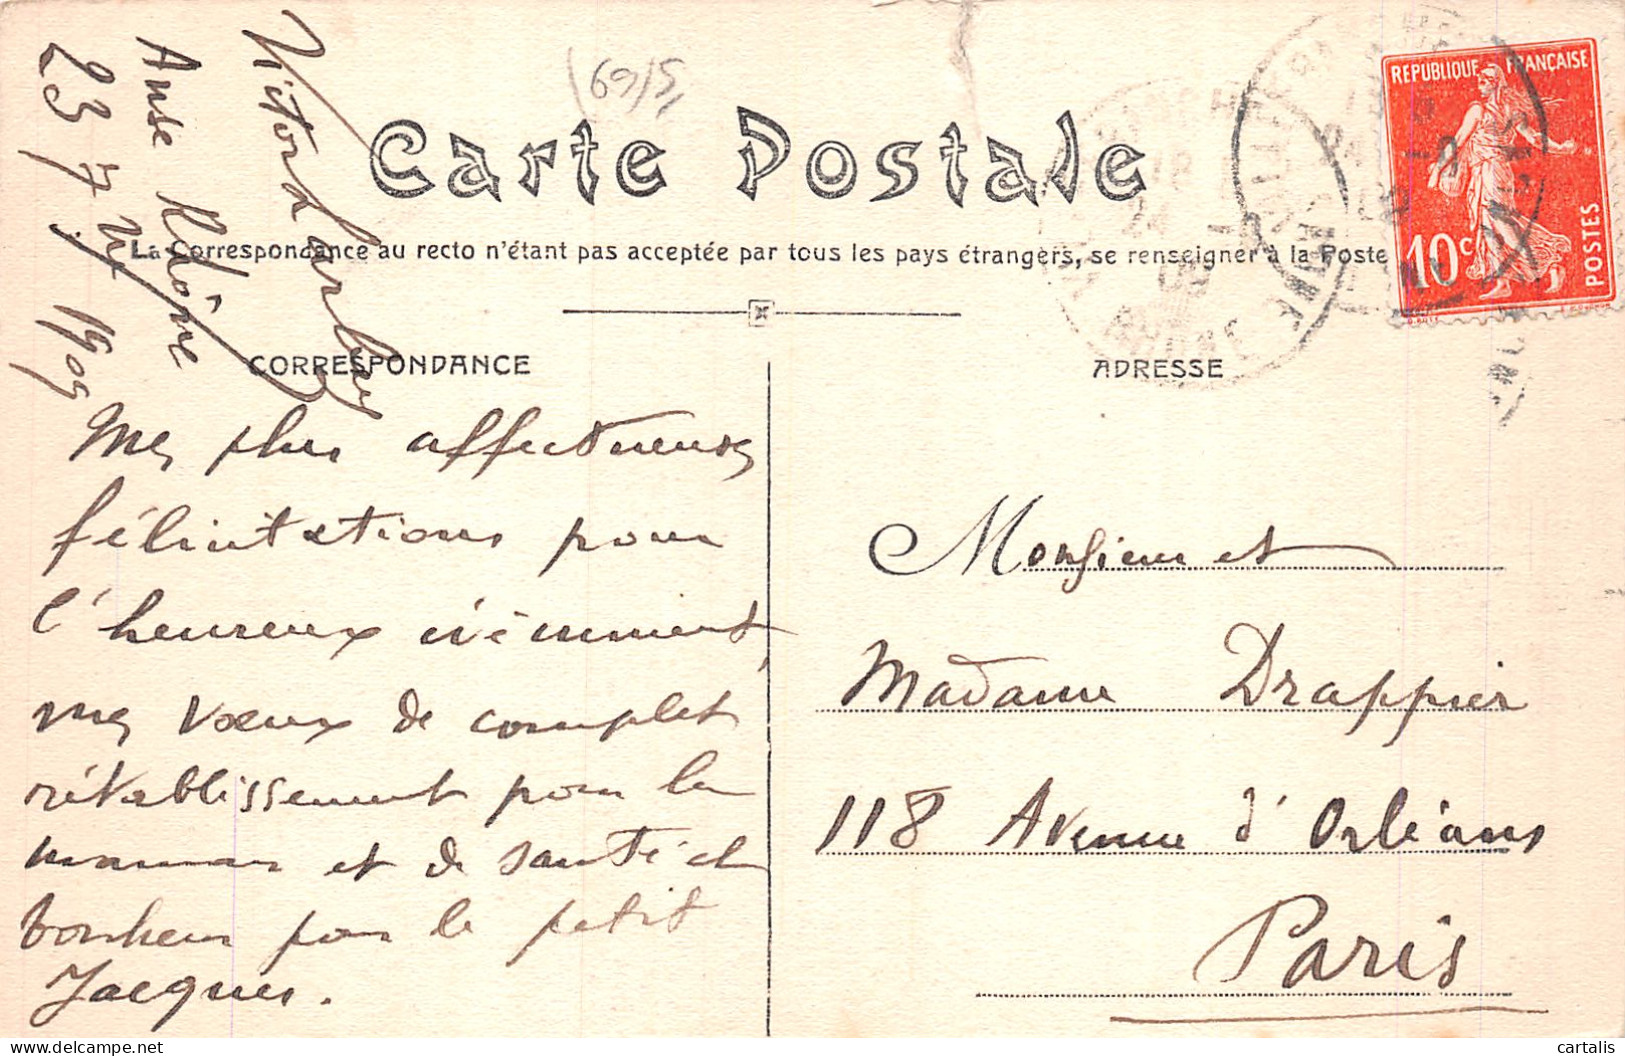 Anse Rhône
23 7 1909
(69)
Carte Postale
La Correspondance au recto n'étant pas acceptée par tous les pays étrangers, se renseigner à la Poste
REPUBLIQUE FRANÇAISE
10c
POSTES
RHONE
CORRESPONDANCE
ADRESSE
Mes plus affectueuses
félicitations pour
l'heureux évènement,
mes vœux de complet
rétablissement pour la
maman et de santé et
bonheur pour le petit
Jacques.
Monsieur et
Madame Drappier
118 Avenue d'Orléans
Paris
cartalis